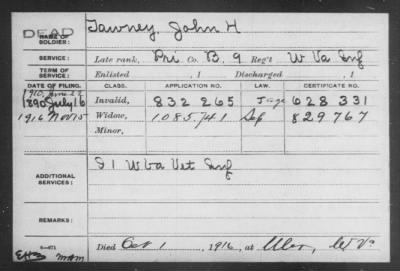 DEAD
NAME OF SOLDIER: Tawney, John H
SERVICE: Late rank, Pri Co. B, 9 Reg't W Va Inf
TERM OF SERVICE: Enlisted , 1 Discharged , 1
DATE OF FILING. CLASS. APPLICATION NO. LAW. CERTIFICATE NO.
1890 July 16 Invalid, 832 265 628 331
1916 Nov 15 Widow, 1085741 829767
Minor,
ADDITIONAL SERVICES: S 1 W Va Vet Inf
REMARKS:
Died Oct 1 , 1916, at W Va